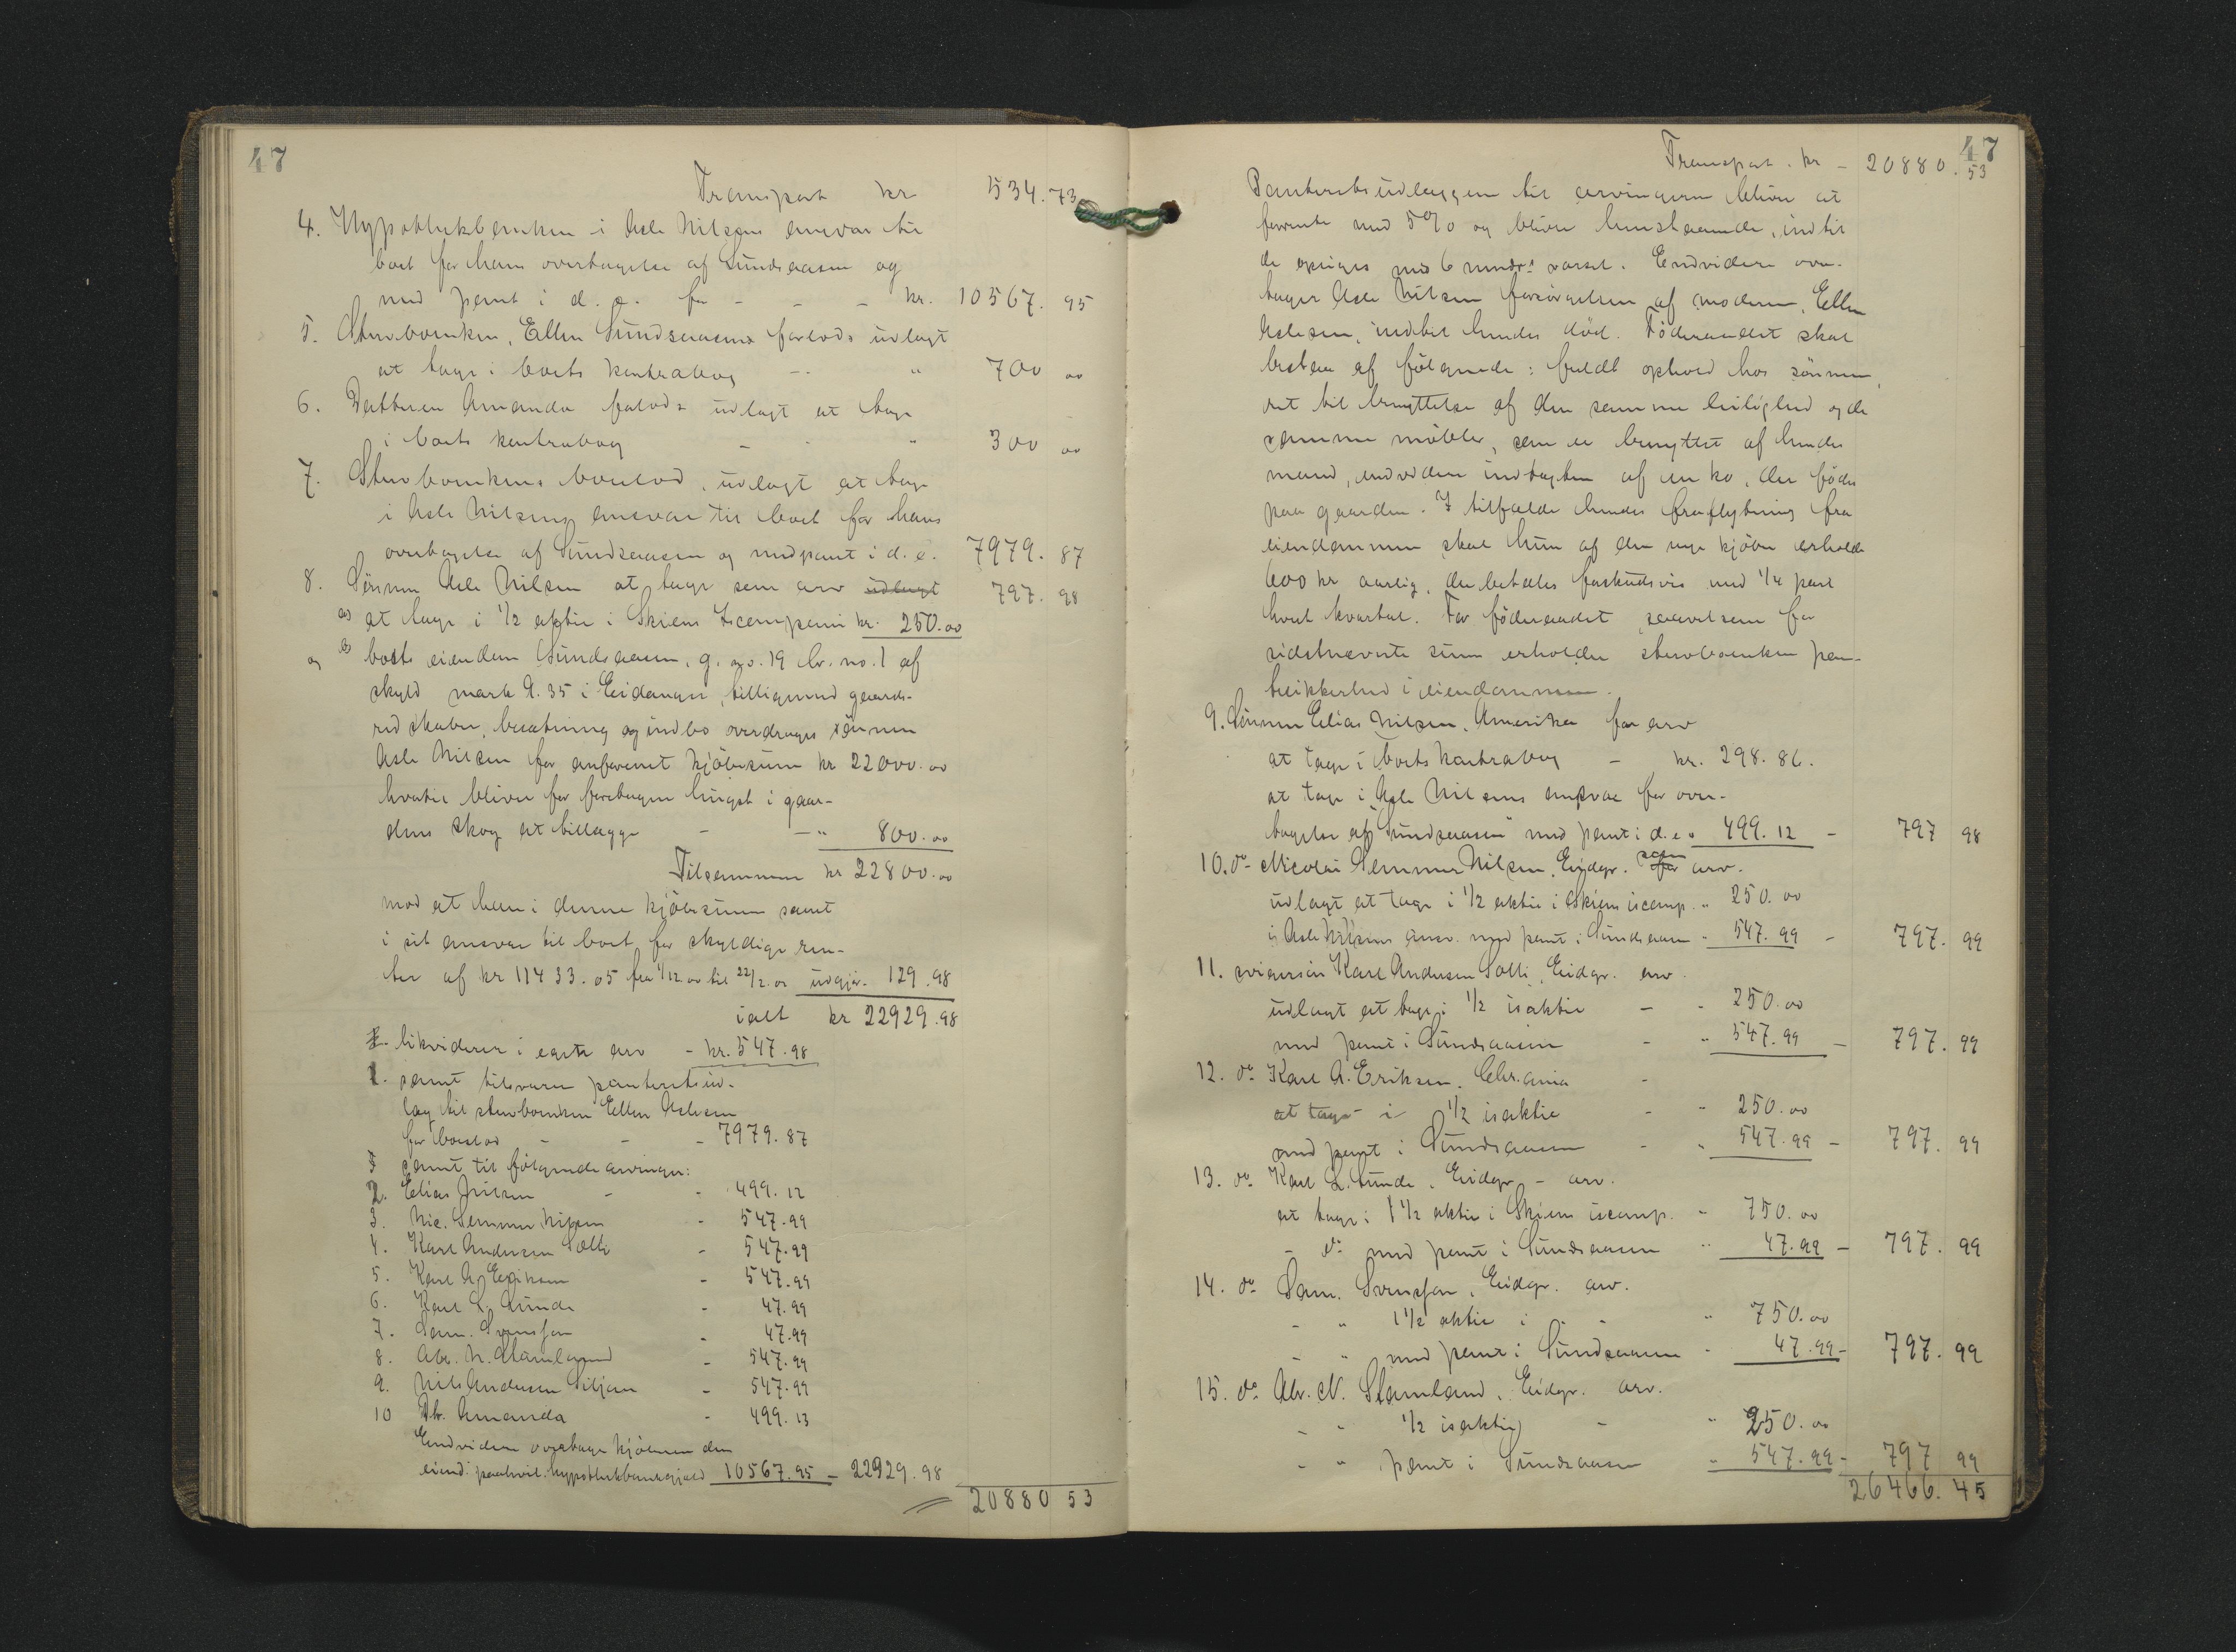 47
Transport kr 534.73
4. Hypothekbanken i Asle Nilsens ansvar til
boet for hans overtagelse af Sundsaasen og
med pant i d. e. for - - - kr. 10567.95
5. Stervboenken, Ellen Sundsaasens forlods udlagt
at tage i boets kontrabog - " 700 00
6. Datteren Amanda forlods udlagt at tage
i boets kontrabog - " 300 00
7. Stervboenkens boeslod, udlagt at tage
i Asle Nilsens ansvar til boet for hans
overtagelse af Sundsaasen og med pant i d. e. 7979.87
8. Sønnen Asle Nilsen at tage som arv udlagt 797.98
a) at tage i 1/2 aktie i Skiens Iscompani kr. 250.00
og b) boets eiendom Sundsaasen, g. no. 19 br. no. 1 af
skyld mark 9.35 i Eidanger, tilligemed gaards-
redskaber, besætning og indbo overdrages sønnen
Asle Nilsen for anførent kjøbesum kr 22000.00
hvortil bliver for foretagen hugst i gaar-
dens skog at tillægge - - " 800.00
Tilsammen kr 22800.00
mod at han i denne kjøbesum samt
i sit ansvar til boet for skyldige ren-
ter af kr 11433.05 fra 1/12.00 til 22/2.01 udgjør. 129.98
ialt kr 22929.98
likviderer i egen arv - kr. 547.98
1. samt tilsvarer panteretsud-
læg til stervboenken Ellen Aslesen
for boeslod - - - 7979.87
samt til følgende arvinger:
2. Elias Nilsen - - 499.12
3. Nic. Semmen Nilsen - 547.99
4. Karl Andersen Solli - 547.99
5. Karl A. Eriksen - 547.99
6. Karl L. Sunde - 47.99
7. Sam. Svensson - 47.99
8. Abr. N. Stamland - 547.99
9. Nils Andersen Siljan - 547.99
10 Dtr. Amanda - 499.13
Endvidere overtager kjøberen den
eiend. paahvil. hypothekbankgjæld 10567.95 - 22929.98
20880 53
47
Transport. kr - 20880.53
Panteretsudlæggen til arvingerne bliver at
forrente med 5% og bliver henstaaende, indtil
de opsiges med 6 mndrs varsel. Endvidere over-
tager Asle Nilsen forsørgelsen af moderen, Ellen
Aslesen, indtil hendes død. Føderaadet skal
bestaa af følgende: fuldt ophold hos sønnen,
ret til benyttelse af den samme leilighed og de
samme møbler, som er benyttet af hendes
mand, endvidere indtægten af en ko, der fødes
paa gaarden. I tilfælde hendes fraflytning fra
eiendommen skal hun af den nye kjøber erholde
600 kr aarlig, der betales forskudsvis med 1/4 part
hvert kvartal. For føderaadet saavelsom for
sidstnævnte sum erholder stervboenken pan-
tesikkerhed i eiendommen.
9. Sønnen Elias Nilsen, Amerika for arv
at tage i boets kontrabog - kr. 298.86.
at tage i Asle Nilsens ansvar for over-
tagelse af "Sundsaasen" med pant i d. e. " 499.12 - 797 98
10. do Nicolai Semmen Nilsen, Eidgr. som for arv.
udlagt at tage i 1/2 aktie i Skiens iscomp. " 250.00
i Asle Nilsens ansv. med pant i Sundsaasen " 547.99 - 797.99
11. svigersøn Karl Andersen Solli, Eidgr. arv.
udlagt at tage i 1/2 isaktie - - 250.00
med pant i Sundsaasen - " 547.99 - 797.99
12. do Karl A. Eriksen. Chr.ania -
at tage i 1/2 isaktie - - 250.00
med pant i Sundsaasen - " 547.99 - 797.99
13. do Karl L. Sunde, Eidgr - arv.
at tage i 1 1/2 aktie i Skiens iscomp. " 750.00
- do med pant i Sundsaasen " 47.99 - 797.99
14. do Sam. Svensson, Eidgr. arv.
- " 1 1/2 aktie i " - " 750.00
- " med pant i Sundsaasen - 47.99 - 797.99
15. do Abr. N. Stamland, Eidgr. arv.
- " 1/2 isaktie - " 250.00
- " pant i Sundsaasen " 547.99 - 797 99
26466.45